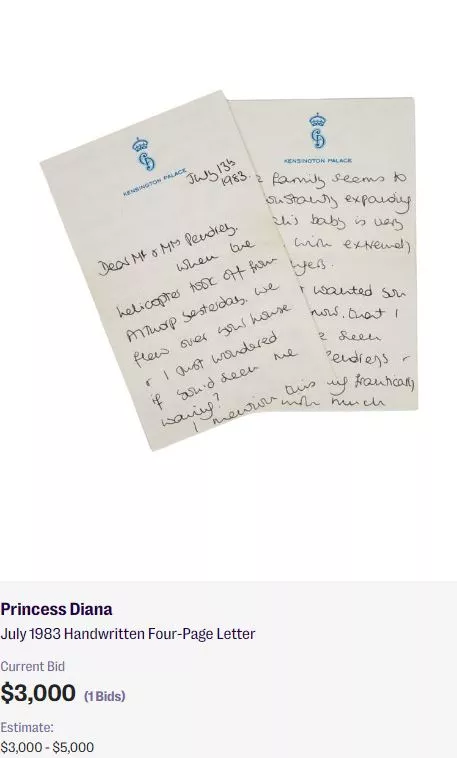 KENSINGTON PALACE
July 13th
1983.
Dear Mr & Mrs Pendrey,
When the
helicopter took off from
Althorp yesterday, we
flew over your house
& I just wondered
if you'd seen me
waving?
I mention this
KENSINGTON PALACE
family seems to
constantly expanding
this baby is very
with extremely
wanted you
know, that I
seen
Pendreys &
my frantically
with much
Princess Diana
July 1983 Handwritten Four-Page Letter
Current Bid
$3,000 (1 Bids)
Estimate:
$3,000 - $5,000